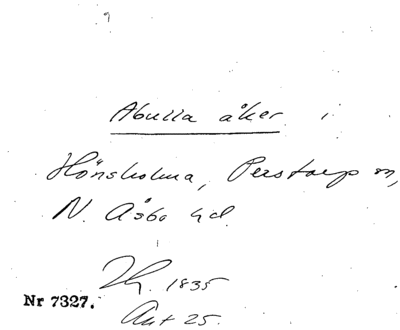 Abulla åker i
Hönsholma, Perstorp sn,
N. Åsbo hd.
Hg. 1835
Nr 7327.
Akt 25.